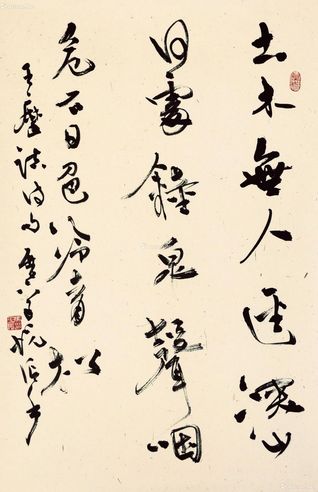 古木無人逕深山
何處鐘泉聲咽
危石日色冷青松
王摩詰詩句